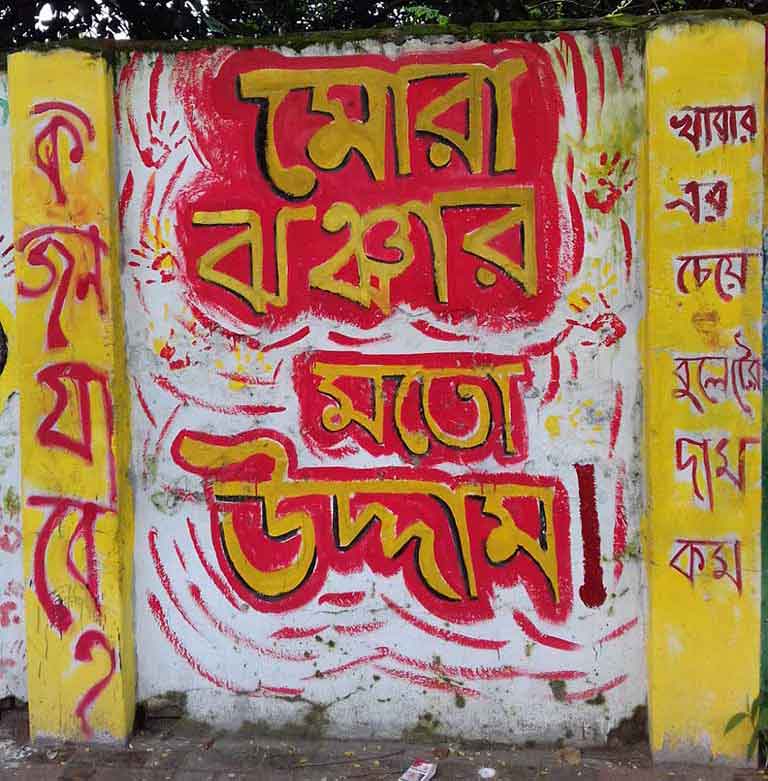 ক
জন
যা
বে
?
মোরা
ঝঞ্চার
মতো
উদ্দাম।
খাবার
এর
চেয়ে
বুলেটের
দাম
কম